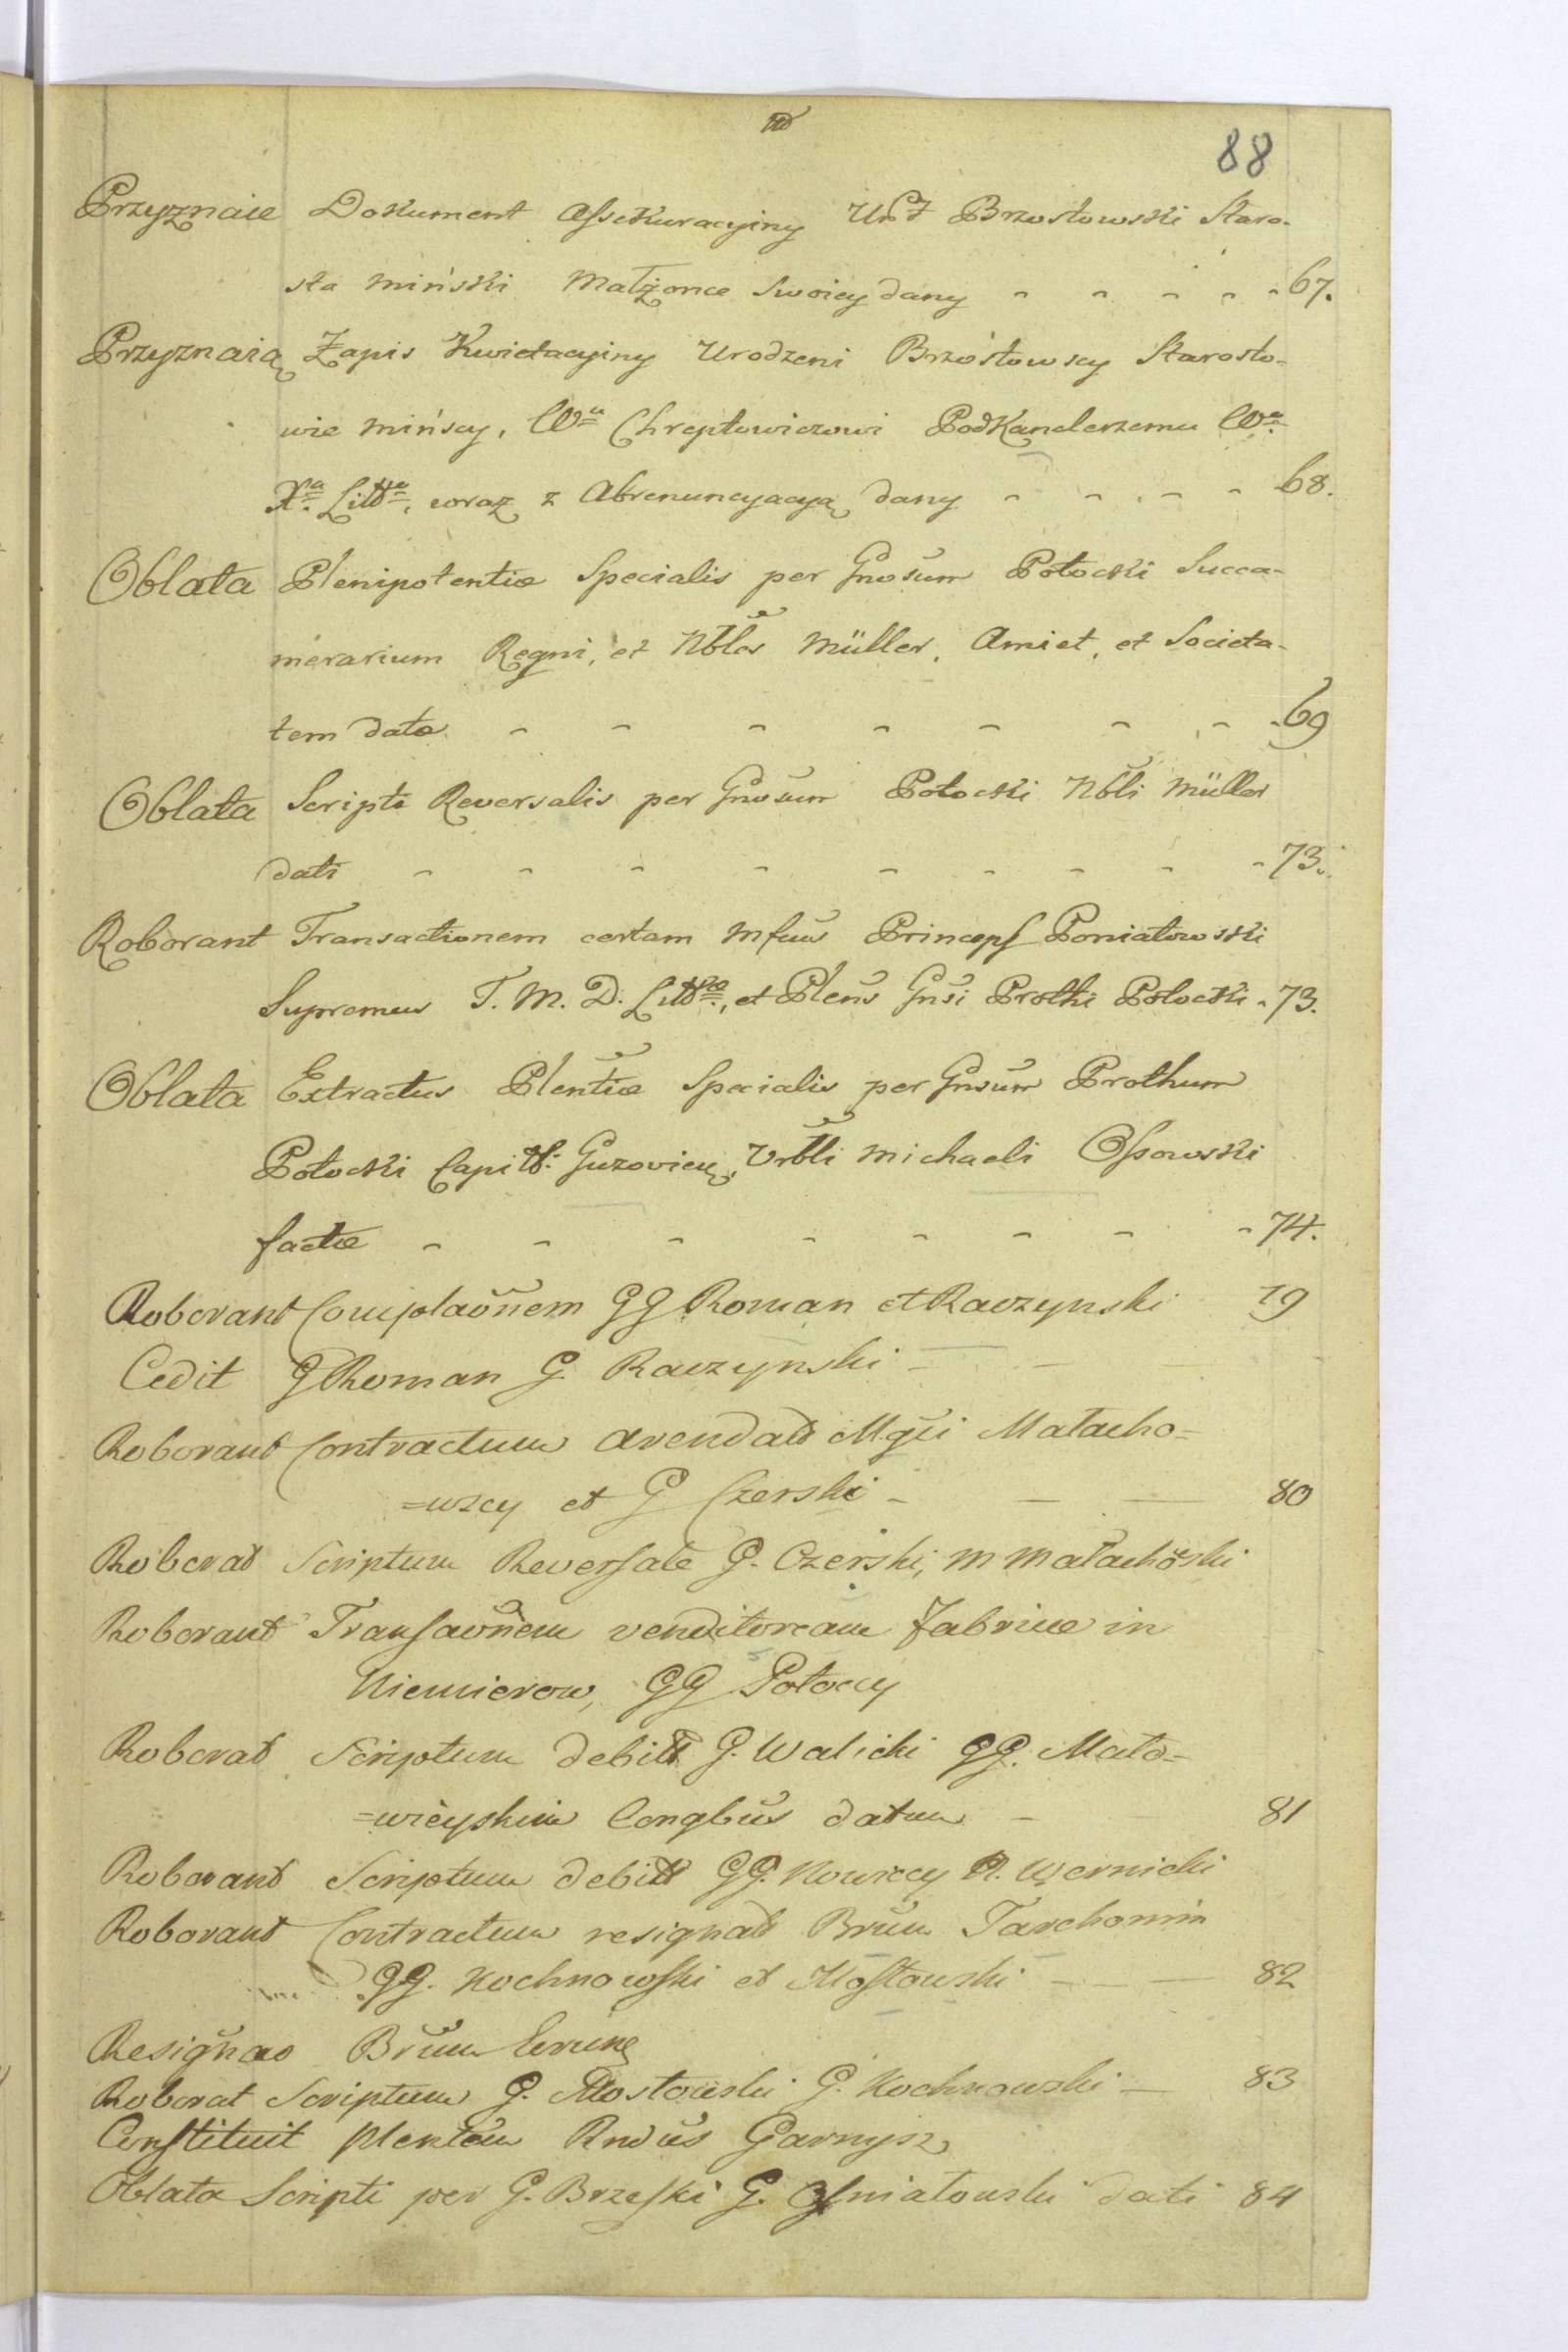 88
Przyznaie Dokument Assekuracyiny Brzostowski Staro-
sta Miński Małżonce Swoiey dany - - - - - 67.
Przyznaią Zapis Kwietacyiny Urodzeni Brzostowscy Starosto-
wie Mińscy, Wu Chreptowiczowi PodKanclerzemu Wo.
Xa. Litto, wraz z Abrenuncyacyą dany - - - - 68.
Oblata Plenipotentiæ Specialis per Gnosum Potocki Succa-
merarium Regni, et Nbles Müller, Amiet, et Societa-
tem datæ - - - - - - - - 69
Oblata Scripti Reversalis per Gnosum Potocki Nbli Müller
dati - - - - - - - - - 73.
Roborant Transactionem certam Mfcus Princeps Poniatowski
Supremus T. M. D. Littiæ, et Plenš Gnsi Prothi Potocki - 73.
Oblata Extractus Plentiæ Specialis per Gnsum Prothum
Potocki Capit. Guzovien, Urbli Michaeli Ossowski
factæ - - - - - - - - 74.
Roborant Complaõnem GG Roman et Raczynski 79
Cedit G Roman G. Raczynski - -
Roborant Contractum arendat Mgči Małacho=
=wscy et G Czerski - - - 80
Roborat Scriptum Reversale G. Czerski, M Małachõski
Roborant Transaõnem venditoream Fabricæ in
Niemierow, GG Potoccy
Roborat Scriptum debitt G. Walicki GG. Mało-
=wieyskim Congbus datum - 81
Roborant Scriptum debitt GG. Nowiccy R. Wernicki
Roborant Contractum resignat Brum Tarchomin
GG. Kochnowski et Mostowski - - - 82
Resignao Brum
Roborat Scriptum G. Mostowski G. Kochnowski - 83
Constituit plentem Rndus Garnysz
Oblata Scripti per G. Brzeski G. Osniałowski dati 84